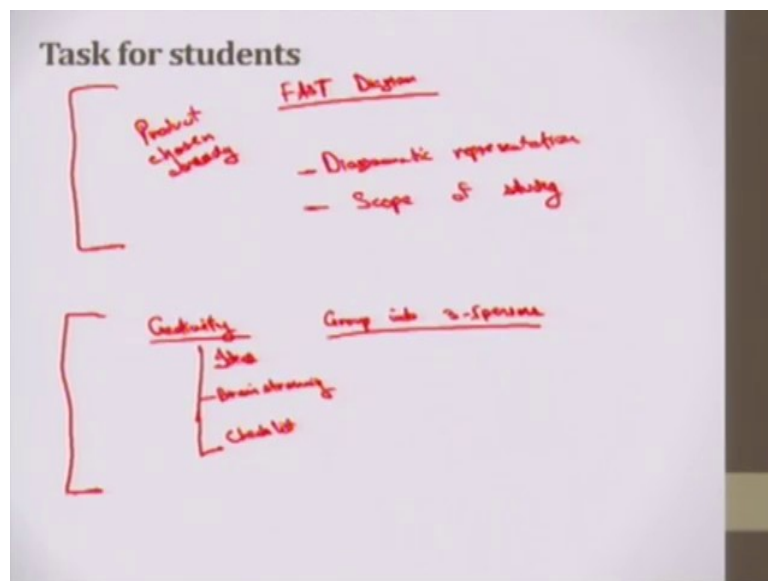 Task for students
FAST Diagram
Product
chosen
already
- Diagrammatic representation
- Scope of study
Creativity
Group into 3-5 persons
Idea
Brain storming
Checklist